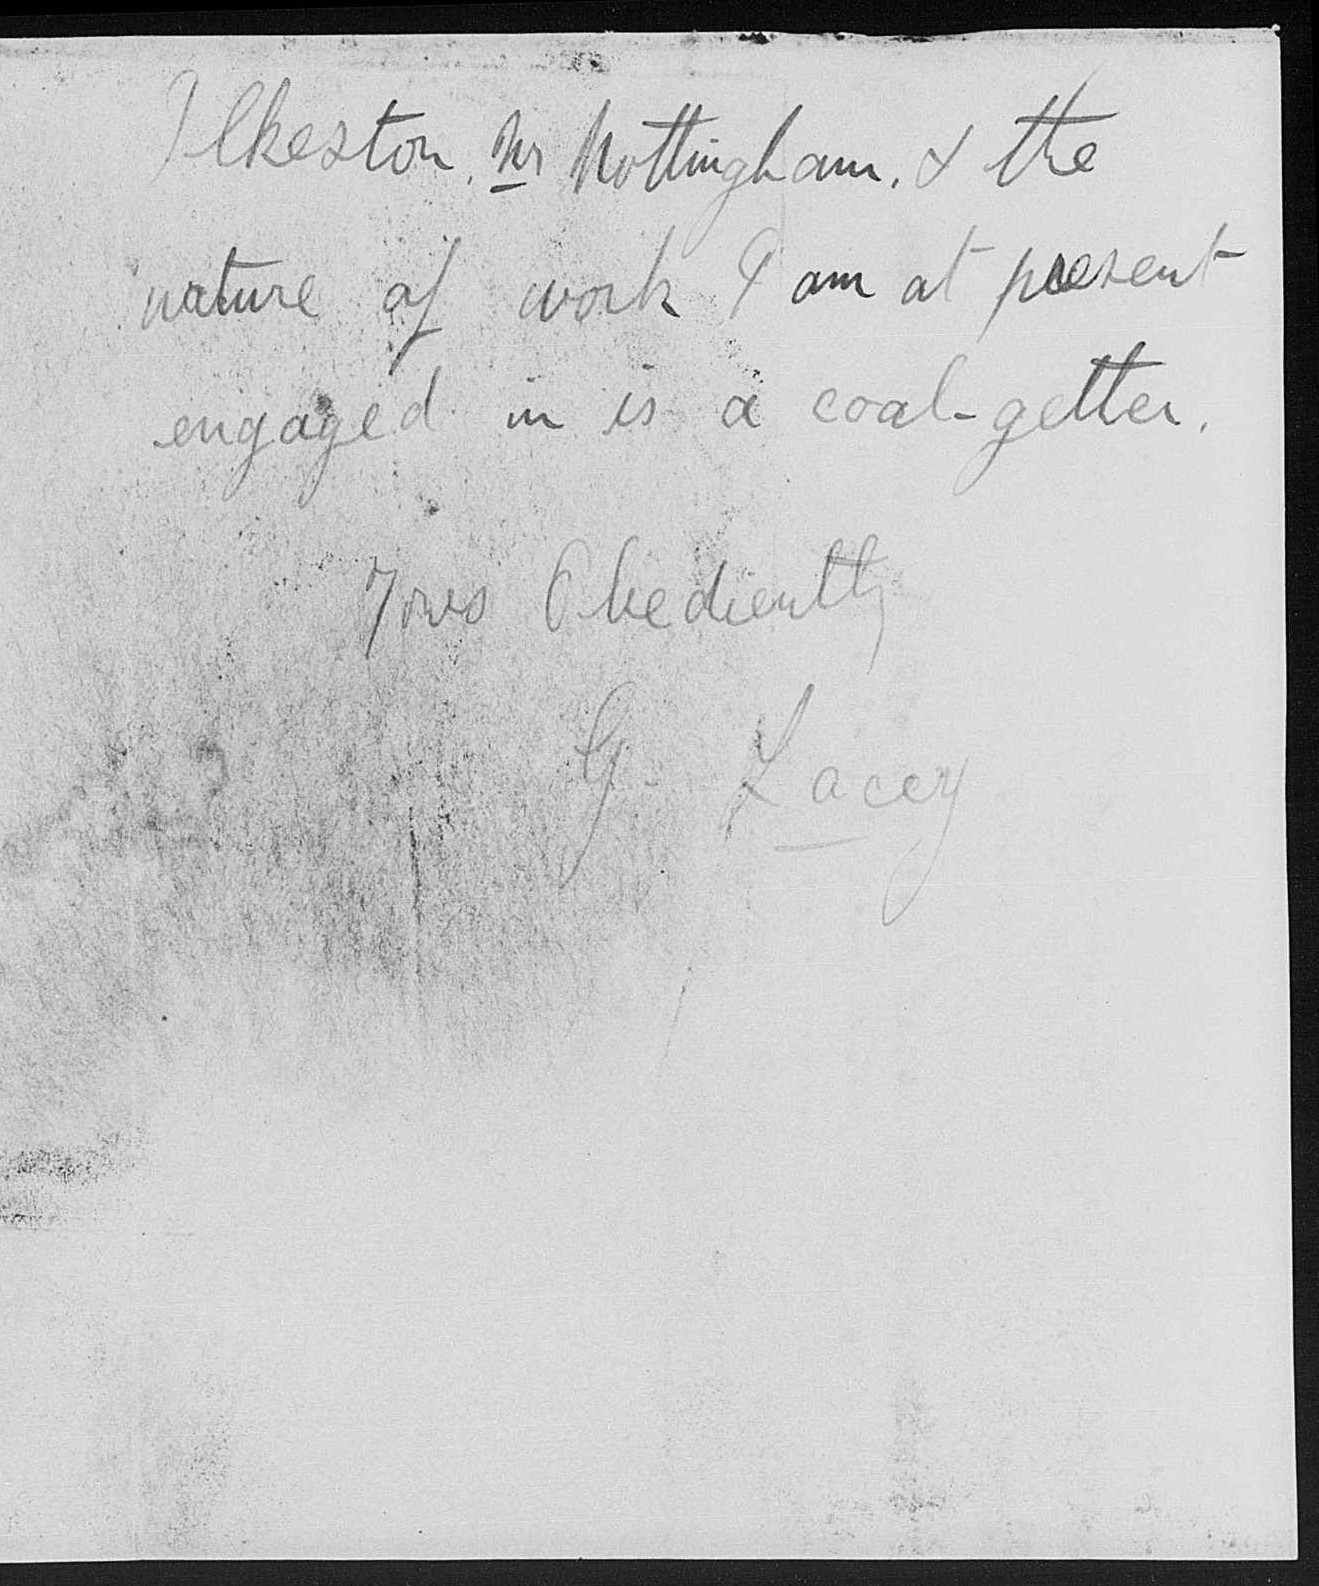 Ilkeston. Nr Nottingham. & the
nature of work I am at present
engaged in is a coal-getter.
Yours Obediently
G. Lacey